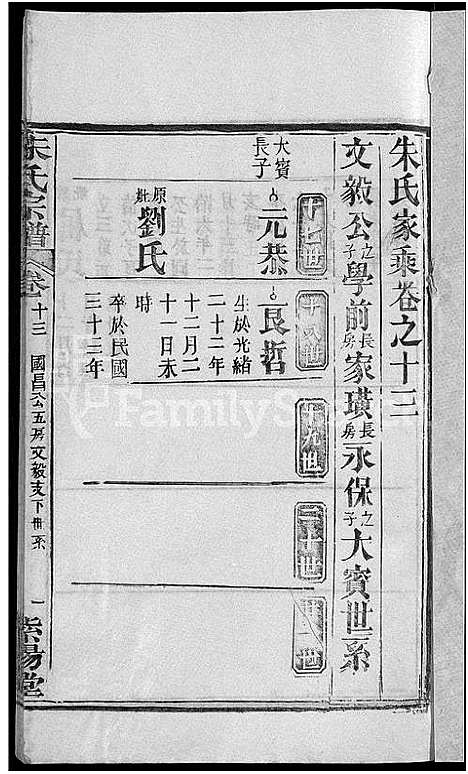 朱氏家乘卷之十三
文毅公之子學前長房家璜長房永保之子大賓世系
十七世
十八世
十九世
二十世
廿一世
大賓長子
元恭
原妣劉氏
艮哲
生於光緒
二十二年
十二月二
十一日未
時
卒於民國
三十三年
朱氏宗譜
卷十三
國昌公五房文毅支下世系
一
紫陽堂
FamilySearch